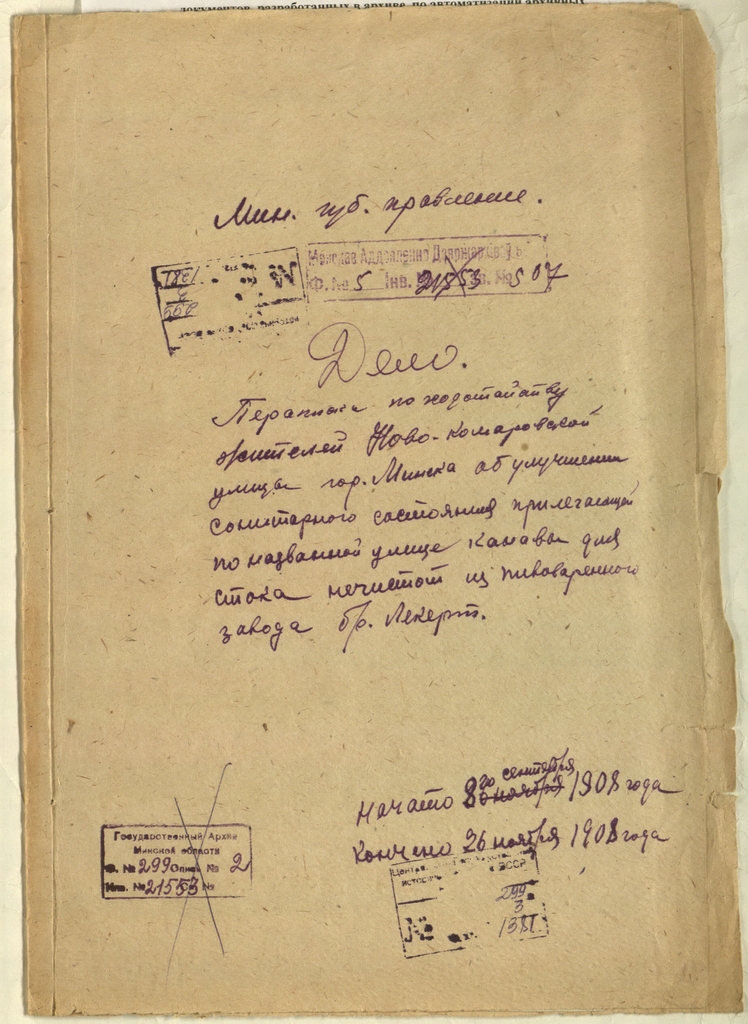 документов, разработанных в архиве, по автоматизации архивных
Мин. губ. правление.
Менскае Аддзяленне Дзяржархіву
Ф. № 5 Інв. 21553 № 507
Дело.
Переписка по ходотайству
жителей Ново-Комаровской
улицы гор. Минска об улучшении
санитарного состояния прилегающей
по названной улице канавы для
стока нечистот из пивоваренного
завода бр. Лекерт.
20 сентября
Начато 8 ноября 1908 года
Кончено 26 ноября 1908 года
Государственный Архив
Минской области
Ф. № 299 Опись № 2
Инв. № 21553 №
БССР
299
3
№ 1381